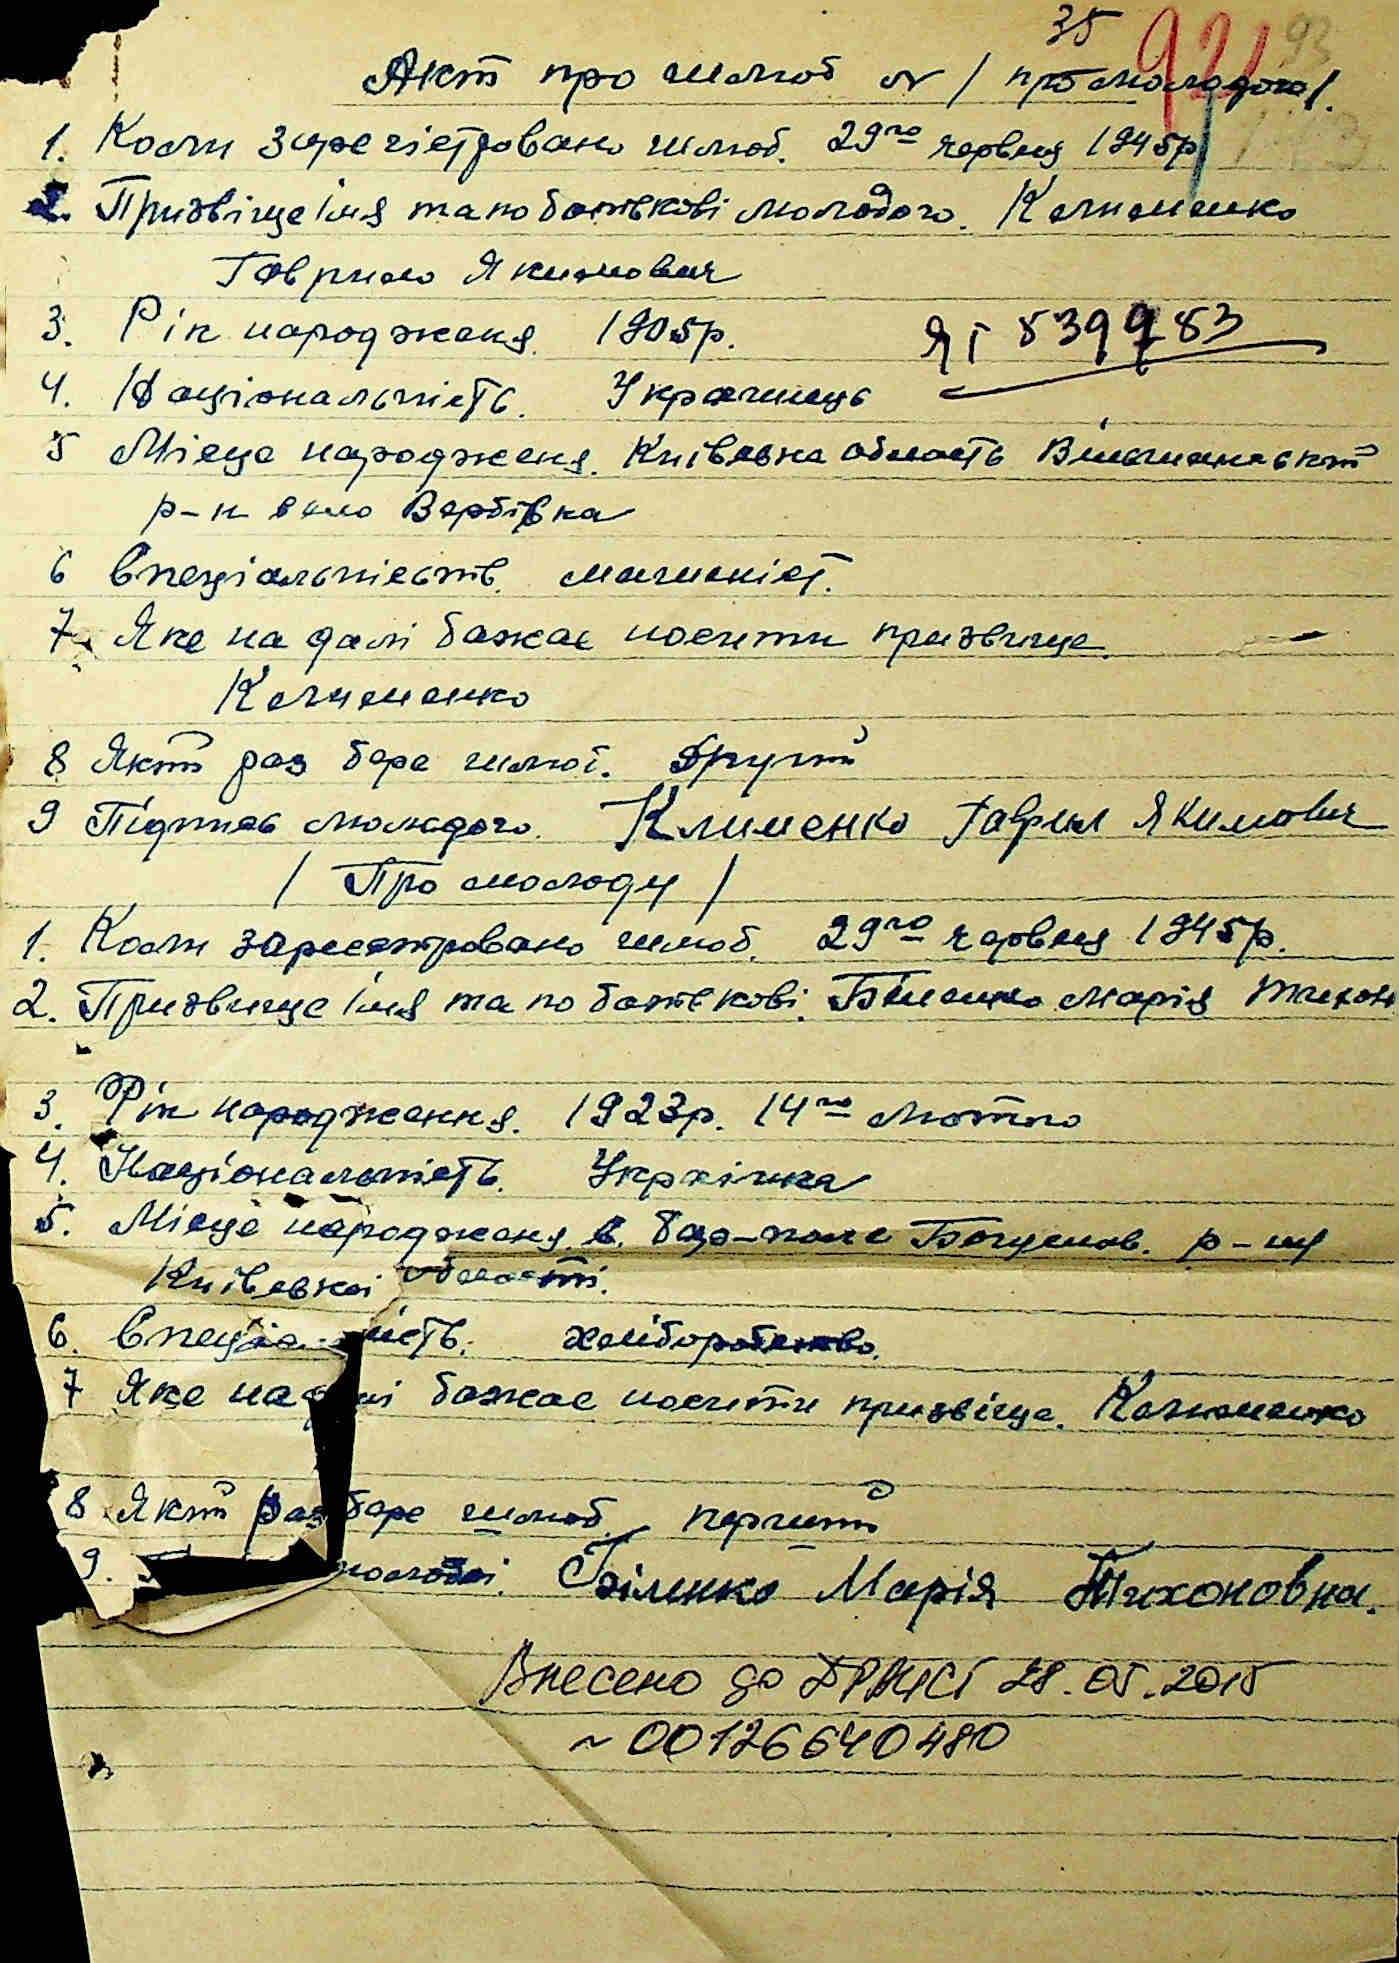 35 92 93
Акт про шлюб № / про молодого /.
1. Коли зарегістровано шлюб. 29го червня 1945р
2. Призвіще імя та по батькові молодого. Клименко
Гаврило Якимович
3. Рік народженя 1905р. ЯГ 839783
4. Національність. Украінець
5 Місце народженя. Київська область Вільшанський
р-н село Вербівка
6 Спеціальність. машиніст.
7. Яке на далі бажає носити призвище.
Клименко
8 Який раз бере шлюб. другий
9 Підпись молодого. Клименко Гаврил Якимович
/ Про молоду /
1. Коли зареєстровано шлюб. 29го червня 1945р.
2. Призвище імя та по батькові. Біленко Марія Тихон
3. Рік народження. 1923р. 14го лютого
4. Національність. Українка
5. Місце народженя. с. р-ну
Київської області.
6. Спеціальність. хліборобство.
7 Яке на далі бажає носити призвіще. Клименко
8 Який раз бере шлюб. перший
9. молодої. Біленко Марія Тихоновна.
Внесено до ДРАЦСГ 28.05.2015
~ 00126640480